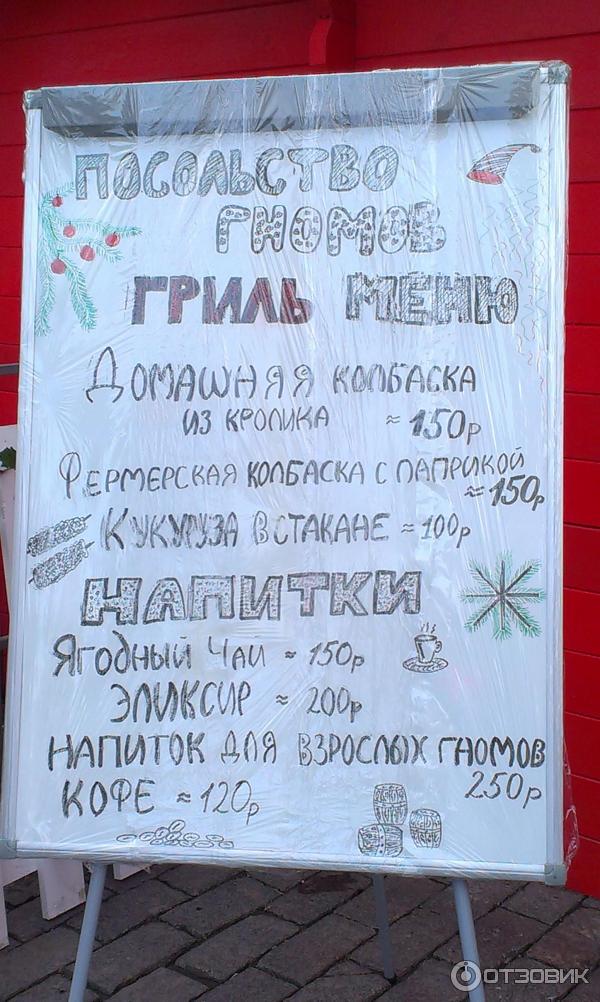 ПОСОЛЬСТВО
ГНОМОВ
ГРИЛЬ МЕНЮ
ДОМАШНЯЯ КОЛБАСКА
ИЗ КРОЛИКА ≈ 150р
ФЕРМЕРСКАЯ КОЛБАСКА С ПАПРИКОЙ
≈ 150р
КУКУРУЗА В СТАКАНЕ ≈ 100р
НАПИТКИ
ЯГОДНЫЙ ЧАЙ ≈ 150р
ЭЛИКСИР ≈ 200р
НАПИТОК ДЛЯ ВЗРОСЛЫХ ГНОМОВ
250р
КОФЕ ≈ 120р
ОТЗОВИК